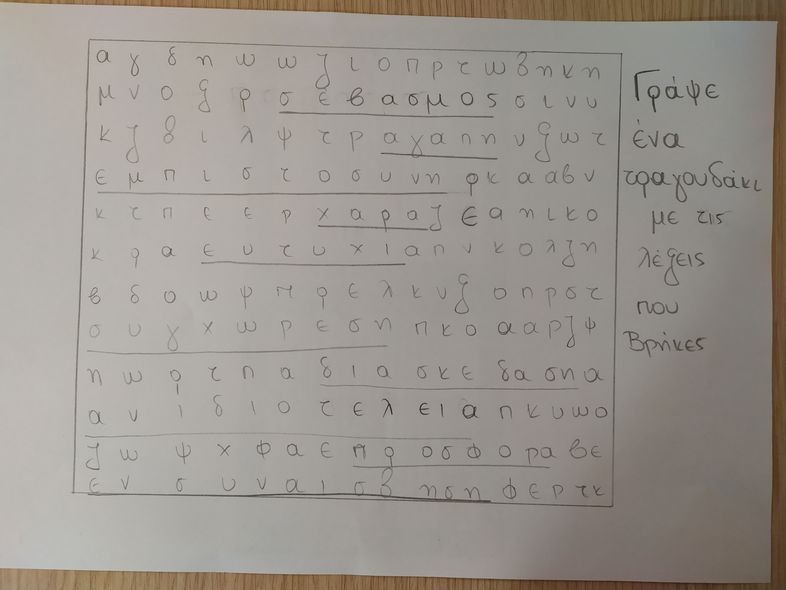 α γ δ η ω ω ζ ι ο π ρ τ ω β η κ η
μ ν ο ξ ρ σ ε β α σ μ ο ς σ ι ν υ
κ ζ δ ι λ ψ τ ρ α γ α π η ν ξ ω τ
ε μ π ι σ τ ο σ υ ν η φ κ α α β ν
κ τ π ε ε ρ χ α ρ α ζ ε α η ι κ ο
κ φ α ε υ τ υ χ ι α π ν κ ο λ ζ η
β δ ο ω ψ π φ ε λ κ υ ξ ο π ρ σ τ
σ υ γ χ ω ρ ε σ η π κ ο α α ρ ζ φ
η ω φ τ π α δ ι α σ κ ε δ α σ η α
α ν ι δ ι ο τ ε λ ε ι α π κ υ ω ο
ζ ω ψ χ φ α ε π ρ ο σ φ ο ρ α β ε
ε ν σ υ ν α ι σ θ η σ η φ ε ρ τ κ
Γράψε
ένα
τραγουδάκι
με τις
λέξεις
που
Βρήκες